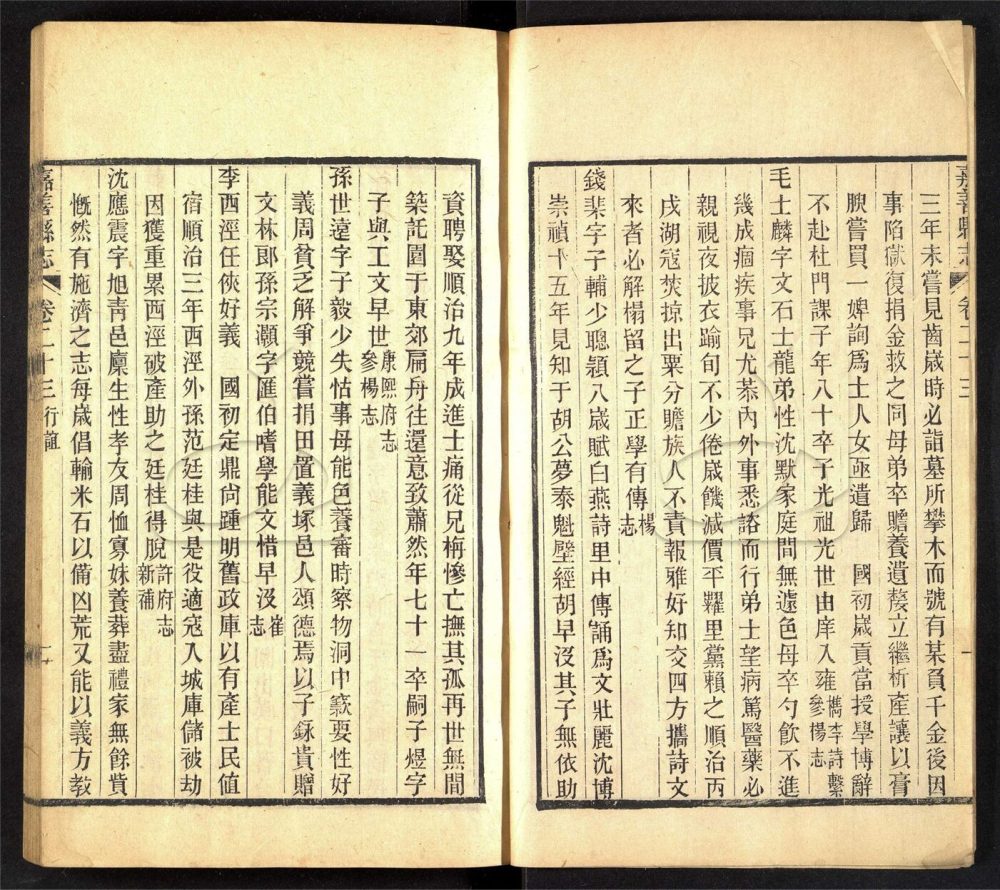 嘉善縣志 卷二十三
三年未嘗見齒歲時必詣墓所攀木而號有某負千金後因
事陷獄復捐金救之同母弟卒贍養遺嫠立繼析產讓以膏
腴嘗買一婢詢爲士人女亟遺歸 國初歲貢當授學博辭
不赴杜門課子年八十卒子光祖光世由庠入雍檇李詩繫參楊志
毛士麟字文石士龍弟性沈默家庭間無遽色母卒勺飮不進
幾成痼疾事兄尤恭內外事悉諮而行弟士望病篤醫藥必
親視夜披衣踰旬不少倦歲饑減價平糶里黨賴之順治丙
戌湖寇焚掠出粟分贍族人不責報雅好知交四方攜詩文
來者必解榻留之子正學有傳楊志
錢棐字子輔少聰穎八歲賦白燕詩里中傳誦爲文壯麗沈博
崇禎十五年見知于胡公夢泰魁壁經胡早沒其子無依助
資聘娶順治九年成進士痛從兄栴慘亡撫其孤再世無間
築託園于東郊扁舟往還意致蕭然年七十一卒嗣子煜字
子與工文早世康熙府志參楊志
孫世遠字子毅少失怙事母能色養審時察物洞中窾要性好
義周貧乏解爭競嘗捐田置義塚邑人頌德焉以子錸貴贈
文林郎孫宗灝字匯伯嗜學能文惜早沒崔志
李西涇任俠好義 國初定鼎尙踵明舊政庫以有產士民値
宿順治三年西涇外孫范廷桂與是役適寇入城庫儲被劫
因獲重累西涇破產助之廷桂得脫許府志新補
沈應震字旭靑邑廩生性孝友周恤寡妹養葬盡禮家無餘貲
慨然有施濟之志每歲倡輸米石以備凶荒又能以義方教
嘉善縣志 卷二十三 行誼